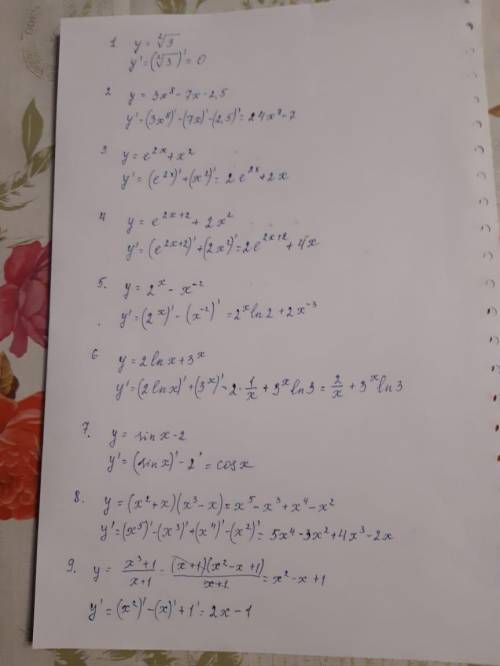 1 y = ²√3
y' = (²√3)' = 0
2 y = 3x⁸ - 7x - 2,5
y' = (3x⁸)' - (7x)' - (2,5)' = 24x⁷ - 7
3 y = e²ˣ + x²
y' = (e²ˣ)' + (x²)' = 2e²ˣ + 2x
4 y = e²ˣ⁺² + 2x²
y' = (e²ˣ⁺²)' + (2x²)' = 2e²ˣ⁺² + 4x
5. y = 2ˣ - x⁻²
y' = (2ˣ)' - (x⁻²)' = 2ˣ ln2 + 2x⁻³
6 y = 2 ln x + 3ˣ
y' = (2 ln x)' + (3ˣ)' = 2·1/x + 3ˣ ln3 = 2/x + 3ˣ ln3
7. y = sin x - 2
y' = (sin x)' - 2' = cos x
8. y = (x² + x)(x³ - x) = x⁵ - x³ + x⁴ - x²
y' = (x⁵)' - (x³)' + (x⁴)' - (x²)' = 5x⁴ - 3x² + 4x³ - 2x
9. y = x³+1/x+1 = (x+1)(x²-x+1)/x+1 = x² - x + 1
y' = (x²)' - (x)' + 1' = 2x - 1